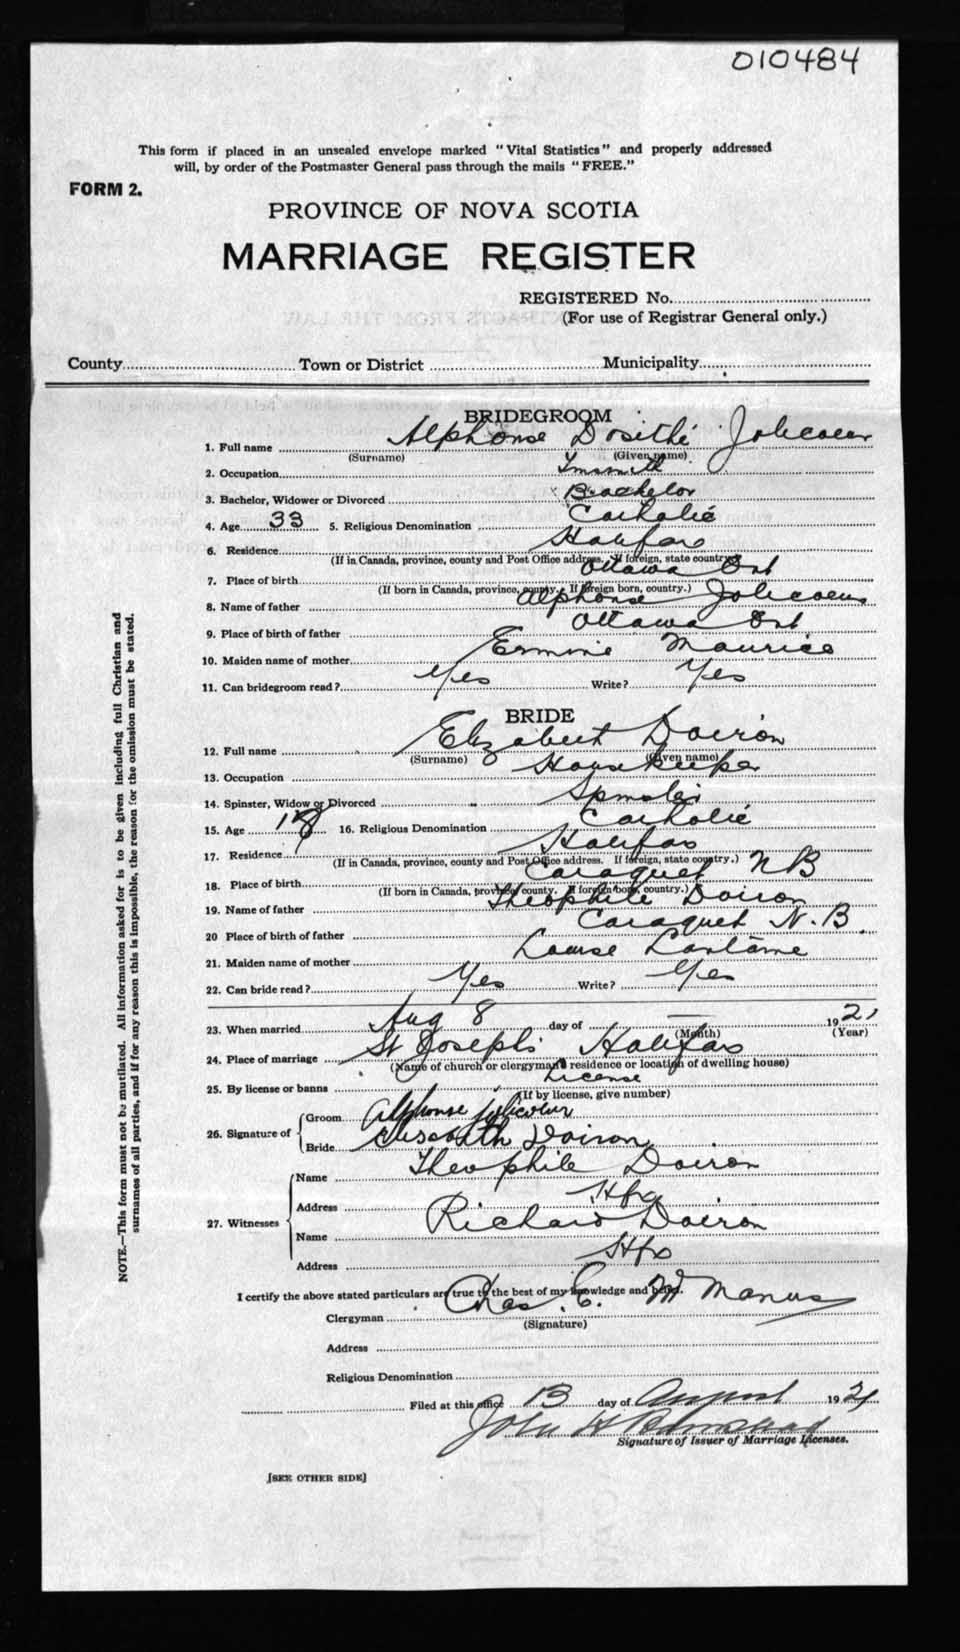 010484
This form if placed in an unsealed envelope marked "Vital Statistics" and properly addressed
will, by order of the Postmaster General pass through the mails "FREE."
FORM 2.
PROVINCE OF NOVA SCOTIA
MARRIAGE REGISTER
REGISTERED No.
(For use of Registrar General only.)
County Town or District Municipality
BRIDEGROOM
1. Full name Alphonse Dosithé Jolicoeur
(Surname) (Given name)
2. Occupation Tinsmith
3. Bachelor, Widower or Divorced Bachelor
4. Age 33 5. Religious Denomination Catholic
6. Residence Halifax
(If in Canada, province, county and Post Office address. If foreign, state country)
7. Place of birth Ottawa Ont
(If born in Canada, province, county. If foreign born, country.)
8. Name of father Alphonse Jolicoeur
9. Place of birth of father Ottawa Ont
10. Maiden name of mother Ermine Maurice
11. Can bridegroom read? Yes Write? Yes
BRIDE
12. Full name Elizabeth Doiron
(Surname) (Given name)
13. Occupation Housekeeper
14. Spinster, Widow or Divorced Spinster
15. Age 18 16. Religious Denomination Catholic
17. Residence Halifax
(If in Canada, province, county and Post Office address. If foreign, state country.)
18. Place of birth Caraquet NB
(If born in Canada, province county. If foreign born, country.)
19. Name of father Theophile Doiron
20 Place of birth of father Caraquet N.B.
21. Maiden name of mother Louise
22. Can bride read? Yes Write? Yes
23. When married Aug 8 day of 1921
(Month) (Year)
24. Place of marriage St Joseph's Halifax
(Name of church or clergyman's residence or location of dwelling house)
25. By license or banns License
(If by license, give number)
26. Signature of Groom Alphonse Jolicoeur
Bride Doiron
27. Witnesses Name Theophile Doiron
Address Hfx
Name Richard Doiron
Address Hfx
I certify the above stated particulars are true to the best of my knowledge and belief.
Clergyman Chas. E. McManus
(Signature)
Address
Religious Denomination
Filed at this office 13 day of August 1921
John H
Signature of Issuer of Marriage Licenses.
[SEE OTHER SIDE]
NOTE.—This form must not be mutilated. All information asked for is to be given including full Christian and
surnames of all parties, and if for any reason this is impossible, the reason for the omission must be stated.